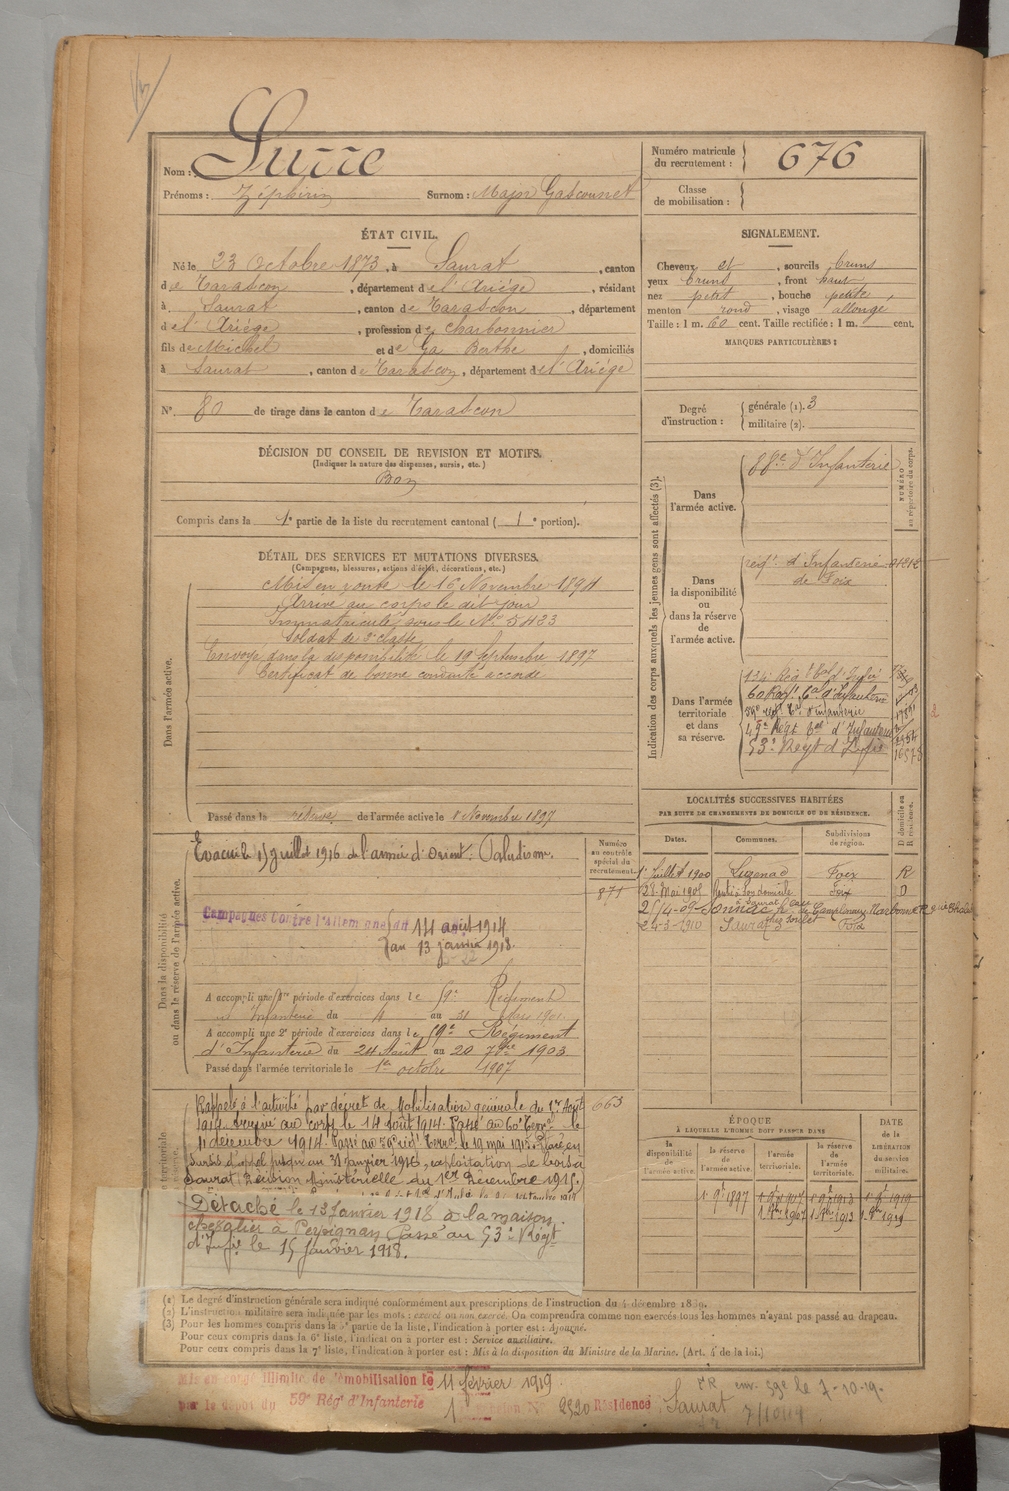 Nom : Surre
Prénoms : Zéphirin Surnom : Major Gascounet
Numéro matricule du recrutement : 676
Classe de mobilisation :
ÉTAT CIVIL.
Né le 23 Octobre 1873, à Saurat, canton
de Tarascon, département de l'Ariége, résidant
à Saurat, canton de Tarascon, département
de l'Ariége, profession de Charbonnier
fils de Michel et de Ga Berthe, domiciliés
à Saurat, canton de Tarascon, département de l'Ariége
N° 80 de tirage dans le canton de Tarascon
SIGNALEMENT.
Cheveux et, sourcils bruns
yeux bruns, front haut
nez petit, bouche petite,
menton rond, visage allongé
Taille : 1 m. 60 cent. Taille rectifiée : 1 m. cent.
MARQUES PARTICULIÈRES :
Degré d'instruction : générale (1). 3
militaire (2).
DÉCISION DU CONSEIL DE REVISION ET MOTIFS.
(Indiquer la nature des dispenses, sursis, etc.)
Bon
Compris dans la 1e partie de la liste du recrutement cantonal ( 1e portion).
DÉTAIL DES SERVICES ET MUTATIONS DIVERSES.
(Campagnes, blessures, actions d'éclat, décorations, etc.)
Dans l'armée active.
Mis en route le 16 Novembre 1894
Arrivé au corps le dit jour
Immatriculé sous le N° 5423
Soldat de 2e classe
Envoyé dans la disponibilité le 19 Septembre 1897
Certificat de bonne conduite accordé
Passé dans la réserve de l'armée active le 1 Novembre 1897
Indication des corps auxquels les jeunes gens sont affectés (3).
NUMÉRO au répertoire du corps.
Dans l'armée active.
88e d'Infanterie
Dans la disponibilité ou dans la réserve de l'armée active.
régt d'Infanterie
de Foix
Dans l'armée territoriale et dans sa réserve.
134 Rég
60 Regt d'Infanterie
d'infanterie
49e Régt d'Infanterie
53e Regt d'Infie
LOCALITÉS SUCCESSIVES HABITÉES
PAR SUITE DE CHANGEMENTS DE DOMICILE OU DE RÉSIDENCE.
Dates. Communes. Subdivisions de région. D domicile ou R résidence.
1 Juillet 1900 Luzenac Foix R
28 Mai 1905 Rentré à son domicile Foix D
à Saurat
24-3-1910 Saurat Foix
Dans la disponibilité ou dans la réserve de l'armée active.
Numéro au contrôle spécial du recrutement.
871
Evacué le 15 juillet 1916 de l'armée d'Orient. Paludisme.
Campagnes contre l'Allemagne du 14 août 1914
au 13 janvier 1918.
A accompli une 1re période d'exercices dans le 59e Régiment
d'Infanterie du 4 au 31 Mars 1901.
A accompli une 2e période d'exercices dans le 59e Régiment
d'Infanterie du 24 Août au 20 7bre 1903
Passé dans l'armée territoriale le 1er octobre 1907
663
Rappelé à l'activité par décret de Mobilisation générale du 1er Août
1914. Arrivé au corps le 14 Août 1914. Passé au 60e Terral le
11 décembre 1914. Placé en
sursis d'appel jusqu'au 31 Janvier 1916, exploitation de bois à
Saurat, Décision Ministérielle du 1er Décembre 1915.
Détaché le 13 Janvier 1918 à la maison
à Perpignan Passé au 53e Régt
d'Infie le 15 Janvier 1918.
ÉPOQUE
À LAQUELLE L'HOMME DOIT PASSER DANS
la disponibilité de l'armée active. la réserve de l'armée active. l'armée territoriale. la réserve de l'armée territoriale.
DATE de la LIBÉRATION du service militaire.
1 9e 1897 1 9e 1907 1 9e 1913 1 9e 1919
1 9bre 1907 1 9bre 1913 1 9bre 1919
(1) Le degré d'instruction générale sera indiqué conformément aux prescriptions de l'instruction du 4 décembre 1889.
(2) L'instruction militaire sera indiquée par les mots : exercé ou non exercé. On comprendra comme non exercés tous les hommes n'ayant pas passé au drapeau.
(3) Pour les hommes compris dans la 5e partie de la liste, l'indication à porter est : Ajourné.
Pour ceux compris dans la 6e liste, l'indication à porter est : Service auxiliaire.
Pour ceux compris dans la 7e liste, l'indication à porter est : Mis à la disposition du Ministre de la Marine. (Art. 4 de la loi.)
Mis en congé illimité de démobilisation le 11 février 1919
par le dépôt du 59e Rég d'Infanterie 1 N° 2520 Résidence Saurat
env. 59e le 7-10-19-
7/10/19